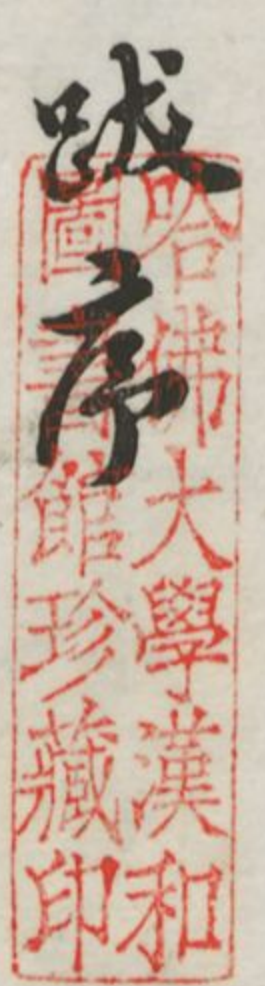 跋序
哈佛大學漢和
圖書館珍藏印